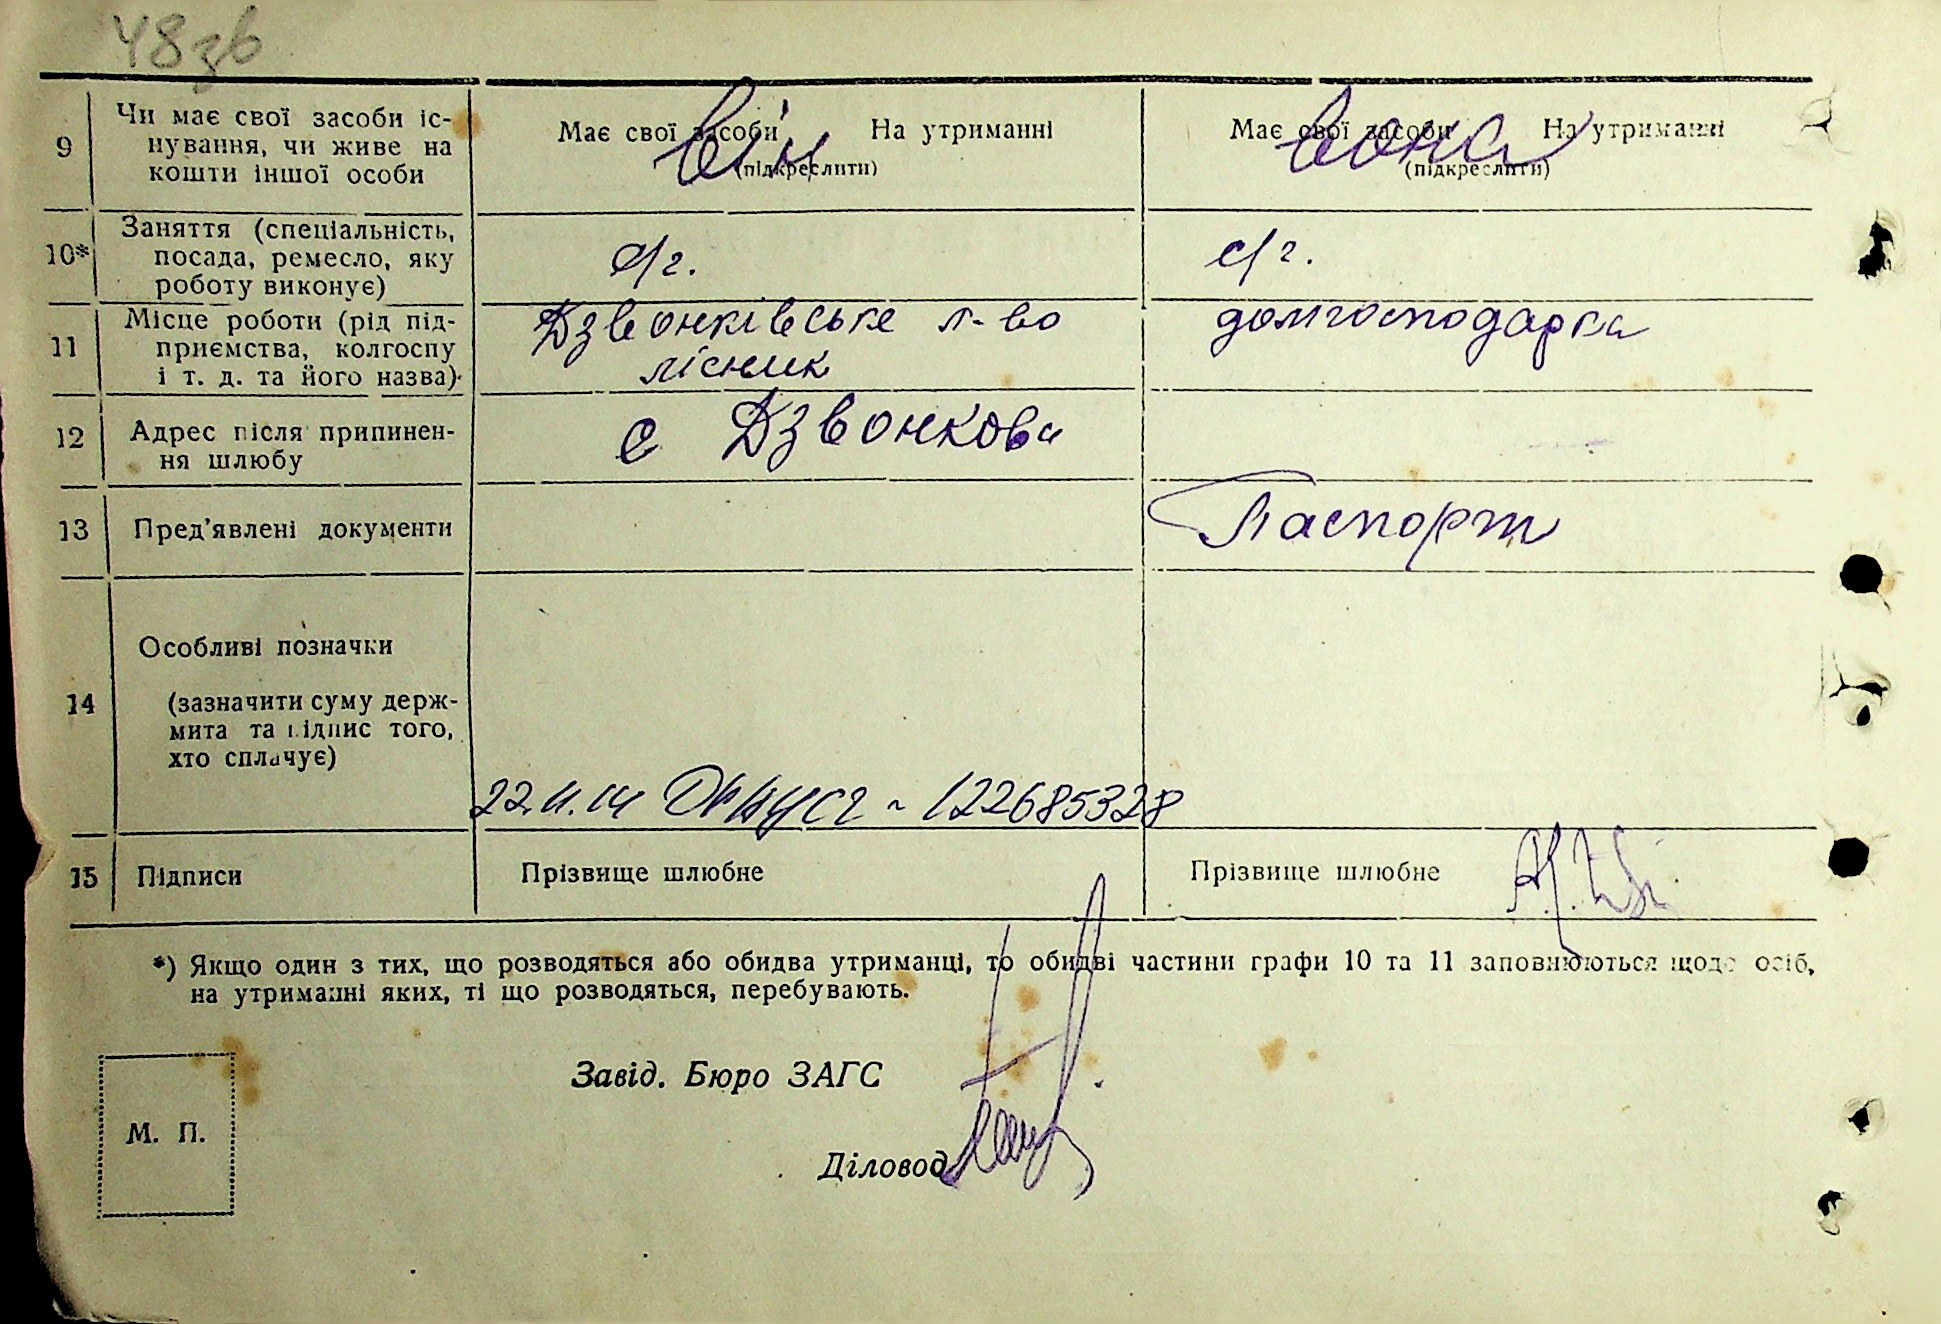 48зв
9
Чи має свої засоби іс-
нування, чи живе на
кошти іншої особи
Має свої засоби На утриманні
він
(підкреслити)
Має свої засоби На утриманні
вона
(підкреслити)
10*
Заняття (спеціальність,
посада, ремесло, яку
роботу виконує)
с/г.
с/г.
11
Місце роботи (рід під-
приємства, колгоспу
і т. д. та його назва)
Дзвонківське л-во
лісник
домгосподарка
12
Адрес після припинен-
ня шлюбу
с Дзвонкова
13
Пред'явлені документи
Паспорт
14
Особливі позначки
(зазначити суму держ-
мита та підпис того,
хто сплачує)
122685328
15
Підписи
Прізвище шлюбне
Прізвище шлюбне
*) Якщо один з тих, що розводяться або обидва утриманці, то обидві частини графи 10 та 11 заповнюються щодо осіб,
на утриманні яких, ті що розводяться, перебувають.
Завід. Бюро ЗАГС
М. П.
Діловод